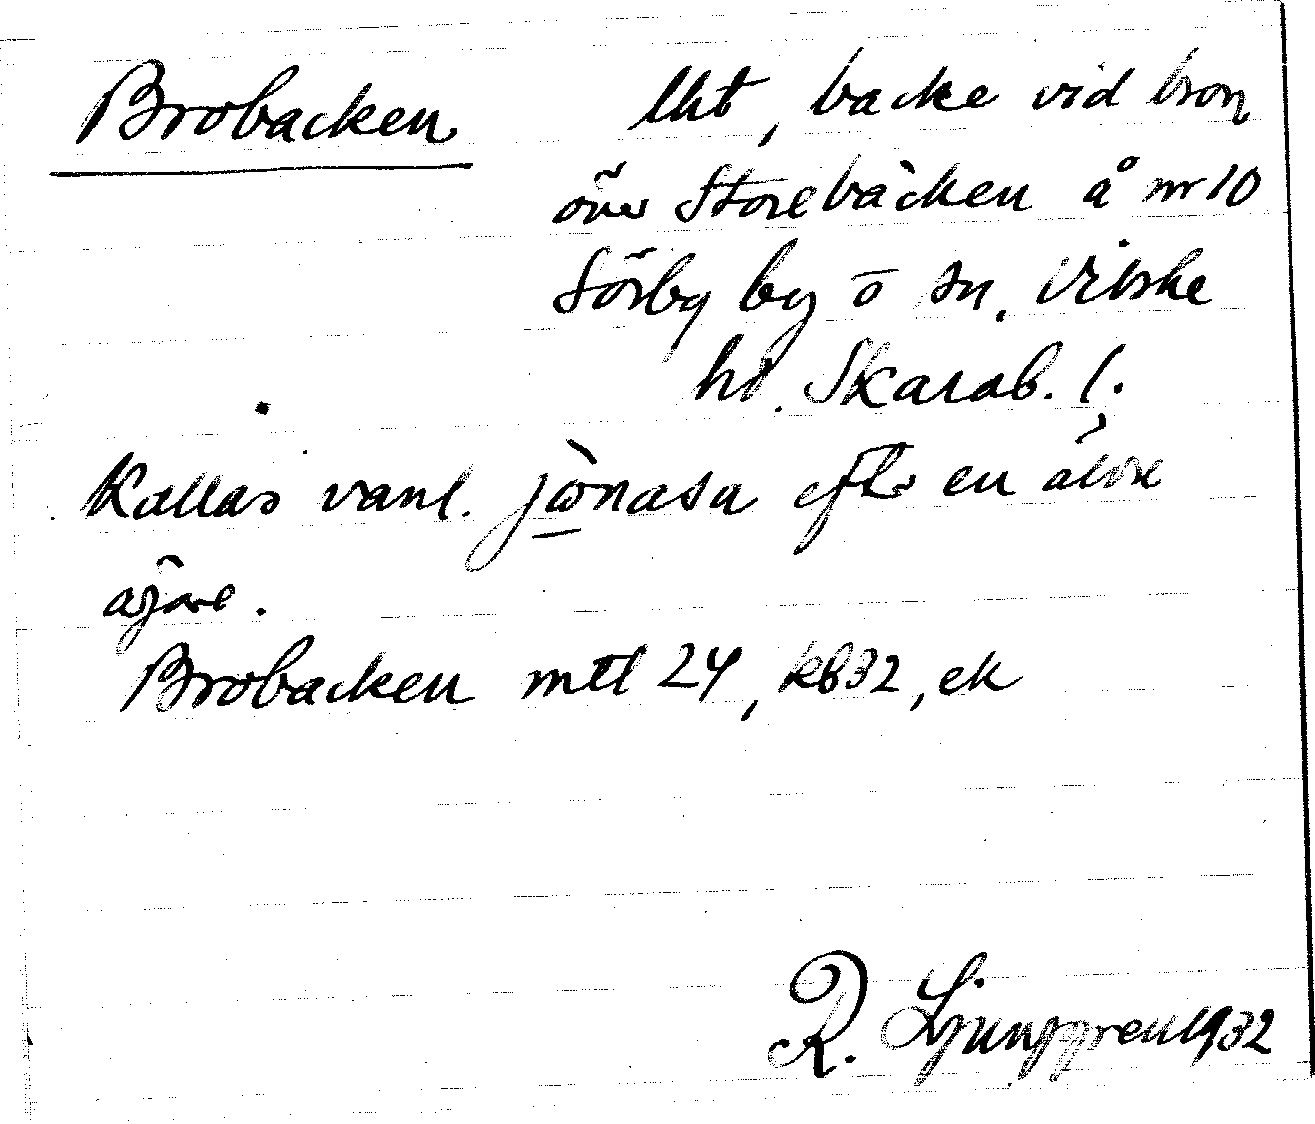 Brobacken lht, backe vid bron
över Storebäcken å nr 10
Sörby by o sn. Vilske
hd. Skarab. l.
Kallas vanl. jònasa efter en äldre
ägare.
Brobacken mtl 24, kb32, ek
R. Ljunggren 1932